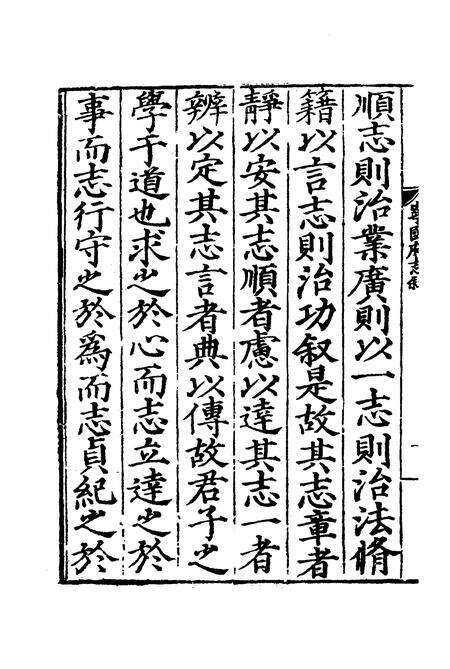 寧國府志叙
順志則治業廣則以一志則治法脩
籍以言志則治功叙是故其志章者
靜以安其志順者慮以達其志一者
辨以定其志言者典以傳故君子之
學于道也求之於心而志立達之於
事而志行守之於為而志貞紀之於